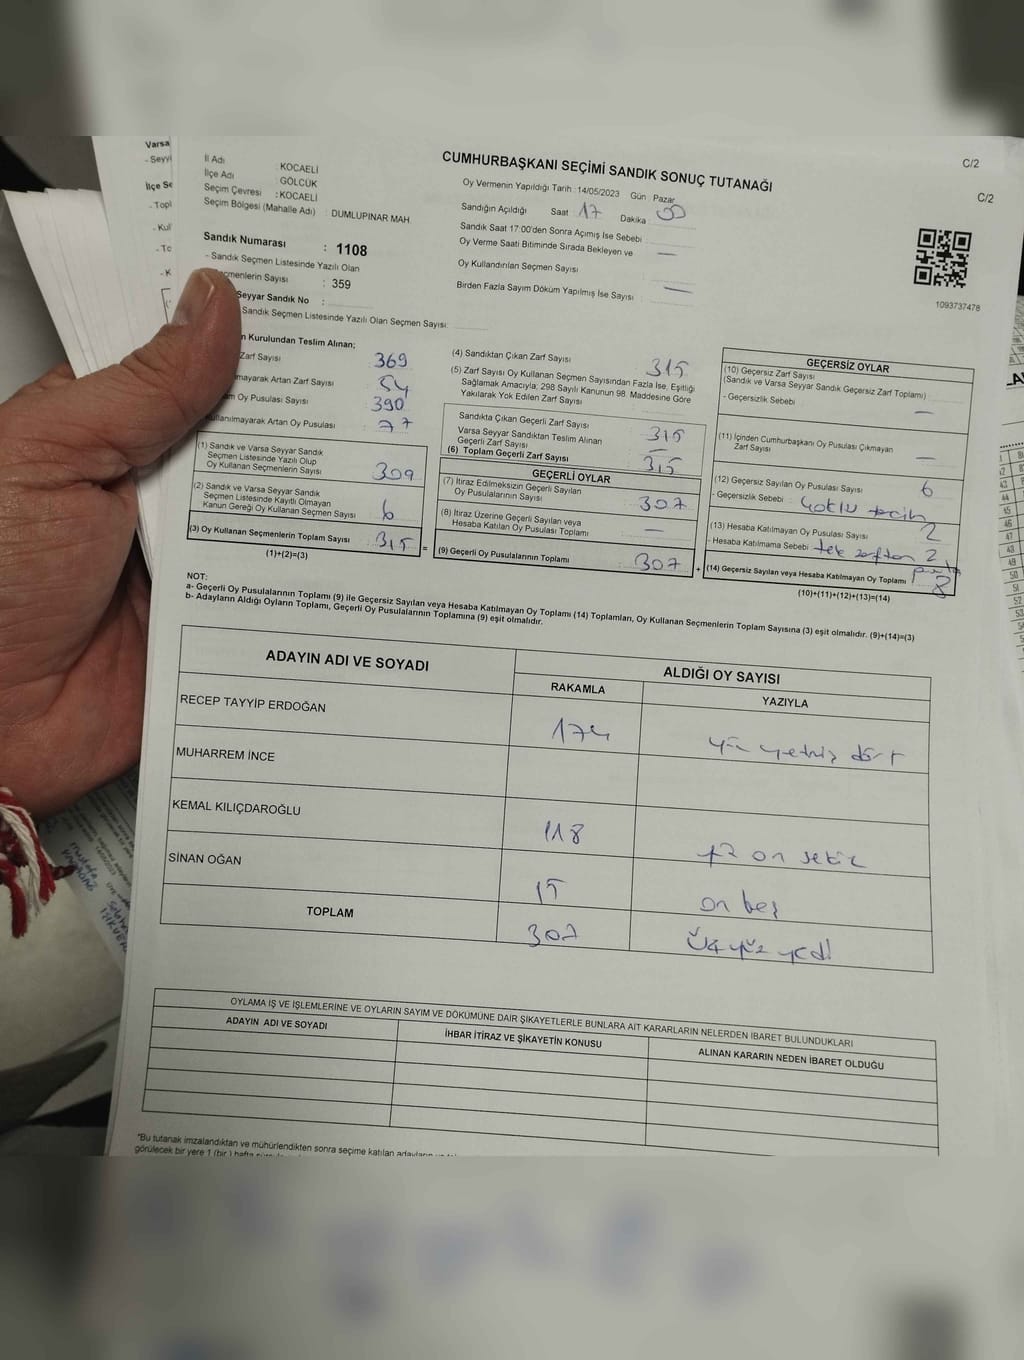 C/2
C/2
CUMHURBAŞKANI SEÇİMİ SANDIK SONUÇ TUTANAĞI
Varsa
- Seyyi
İlçe Se
- Topl
- Kul
- To
- K
İl Adı : KOCAELİ
İlçe Adı : GÖLCÜK
Seçim Çevresi : KOCAELİ
Seçim Bölgesi (Mahalle Adı) : DUMLUPINAR MAH
Sandık Numarası : 1108
- Sandık Seçmen Listesinde Yazılı Olan
eçmenlerin Sayısı : 359
Seyyar Sandık No :
Sandık Seçmen Listesinde Yazılı Olan Seçmen Sayısı:
Oy Vermenin Yapıldığı Tarih : 14/05/2023 Gün Pazar
Sandığın Açıldığı Saat 17 Dakika 00
Sandık Saat 17:00'den Sonra Açımış İse Sebebi :
Oy Verme Saati Bitiminde Sırada Bekleyen ve —
Oy Kullandırılan Seçmen Sayısı
Birden Fazla Sayım Döküm Yapılmış İse Sayısı : —
1093737478
n Kurulundan Teslim Alınan;
Zarf Sayısı 369
mayarak Artan Zarf Sayısı 54
am Oy Pusulası Sayısı 390
ullanılmayarak Artan Oy Pusulası 77
(1) Sandık ve Varsa Seyyar Sandık
Seçmen Listesinde Yazılı Olup
Oy Kullanan Seçmenlerin Sayısı 309
(2) Sandık ve Varsa Seyyar Sandık
Seçmen Listesinde Kayıtlı Olmayan
Kanun Gereği Oy Kullanan Seçmen Sayısı 6
(3) Oy Kullanan Seçmenlerin Toplam Sayısı 315
(1)+(2)=(3)
=
(4) Sandıktan Çıkan Zarf Sayısı 315
(5) Zarf Sayısı Oy Kullanan Seçmen Sayısından Fazla İse, Eşitliği
Sağlamak Amacıyla; 298 Sayılı Kanunun 98. Maddesine Göre
Yakılarak Yok Edilen Zarf Sayısı
Sandıkta Çıkan Geçerli Zarf Sayısı 315
Varsa Seyyar Sandıktan Teslim Alınan
Geçerli Zarf Sayısı —
(6) Toplam Geçerli Zarf Sayısı 315
GEÇERLİ OYLAR
(7) İtiraz Edilmeksizin Geçerli Sayılan
Oy Pusulalarının Sayısı 307
(8) İtiraz Üzerine Geçerli Sayılan veya
Hesaba Katılan Oy Pusulası Toplamı —
(9) Geçerli Oy Pusulalarının Toplamı 307
+
GEÇERSİZ OYLAR
(10) Geçersiz Zarf Sayısı
(Sandık ve Varsa Seyyar Sandık Geçersiz Zarf Toplamı)
- Geçersizlik Sebebi —
(11) İçinden Cumhurbaşkanı Oy Pusulası Çıkmayan
Zarf Sayısı —
(12) Geçersiz Sayılan Oy Pusulası Sayısı 6
- Geçersizlik Sebebi : Çoklu tercih
(13) Hesaba Katılmayan Oy Pusulası Sayısı 2
- Hesaba Katılmama Sebebi : tek zarftan 2
pusula
(14) Geçersiz Sayılan veya Hesaba Katılmayan Oy Toplamı 8
(10)+(11)+(12)+(13)=(14)
NOT:
a- Geçerli Oy Pusulalarının Toplamı (9) ile Geçersiz Sayılan veya Hesaba Katılmayan Oy Toplamı (14) Toplamları, Oy Kullanan Seçmenlerin Toplam Sayısına (3) eşit olmalıdır. (9)+(14)=(3)
b- Adayların Aldığı Oyların Toplamı, Geçerli Oy Pusulalarının Toplamına (9) eşit olmalıdır.
ADAYIN ADI VE SOYADI ALDIĞI OY SAYISI
RAKAMLA YAZIYLA
RECEP TAYYİP ERDOĞAN 174 yüz yetmiş dört
MUHARREM İNCE
KEMAL KILIÇDAROĞLU 118 yüz on sekiz
SİNAN OĞAN 15 on beş
TOPLAM 307 üç yüz yedi
OYLAMA İŞ VE İŞLEMLERİNE VE OYLARIN SAYIM VE DÖKÜMÜNE DAİR ŞİKAYETLERLE BUNLARA AİT KARARLARIN NELERDEN İBARET BULUNDUKLARI
ADAYIN ADI VE SOYADI İHBAR İTİRAZ VE ŞİKAYETİN KONUSU ALINAN KARARIN NEDEN İBARET OLDUĞU
"Bu tutanak imzalandıktan ve mühürlendikten sonra seçime katılan adayların
görülecek bir yere 1 (bir ) hafta